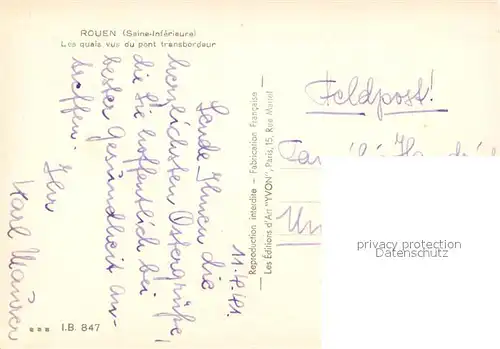 ROUEN (Seine-Inférieure)
Les quais vus du pont transbordeur
11.4.41.
Sende Ihnen die
herzlichsten Ostergrüße,
die Sie hoffentlich bei
bester Gesundheit an-
treffen.
Ihr
Karl
I.B. 847
Reproduction interdite – Fabrication Française –
Les Éditions d'Art "YVON", Paris, 15, Rue Martel
Feldpost!
privacy protection
Datenschutz